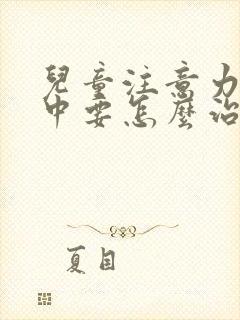 兒童注意力
中要怎麼治
夏目